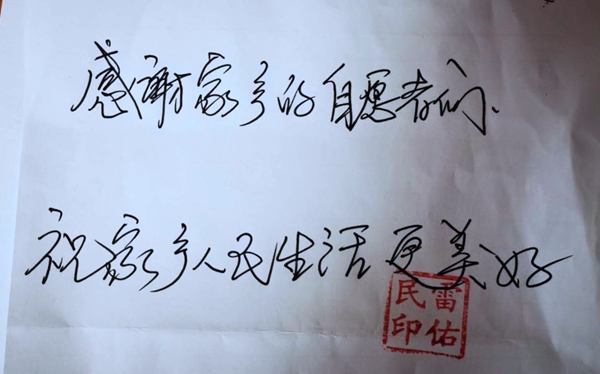 感谢家乡的自愿者们、
祝家乡人民生活更美好
雷佑民印